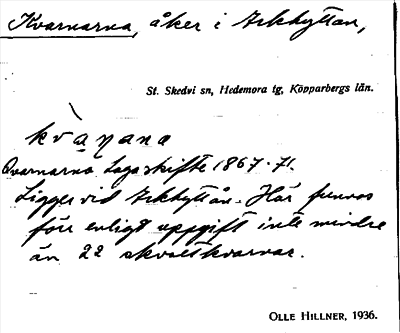 Kvarnarna, åker i Arkhyttan,
St. Skedvi sn, Hedemora tg, Kopparbergs län.
kvàṇana
Qvarnarna Laga skifte 1867-71.
Ligger vid Arkhyttån. Här funnos
förr enligt uppgift inte mindre
än 22 skvaltkvarnar.
OLLE HILLNER, 1936.